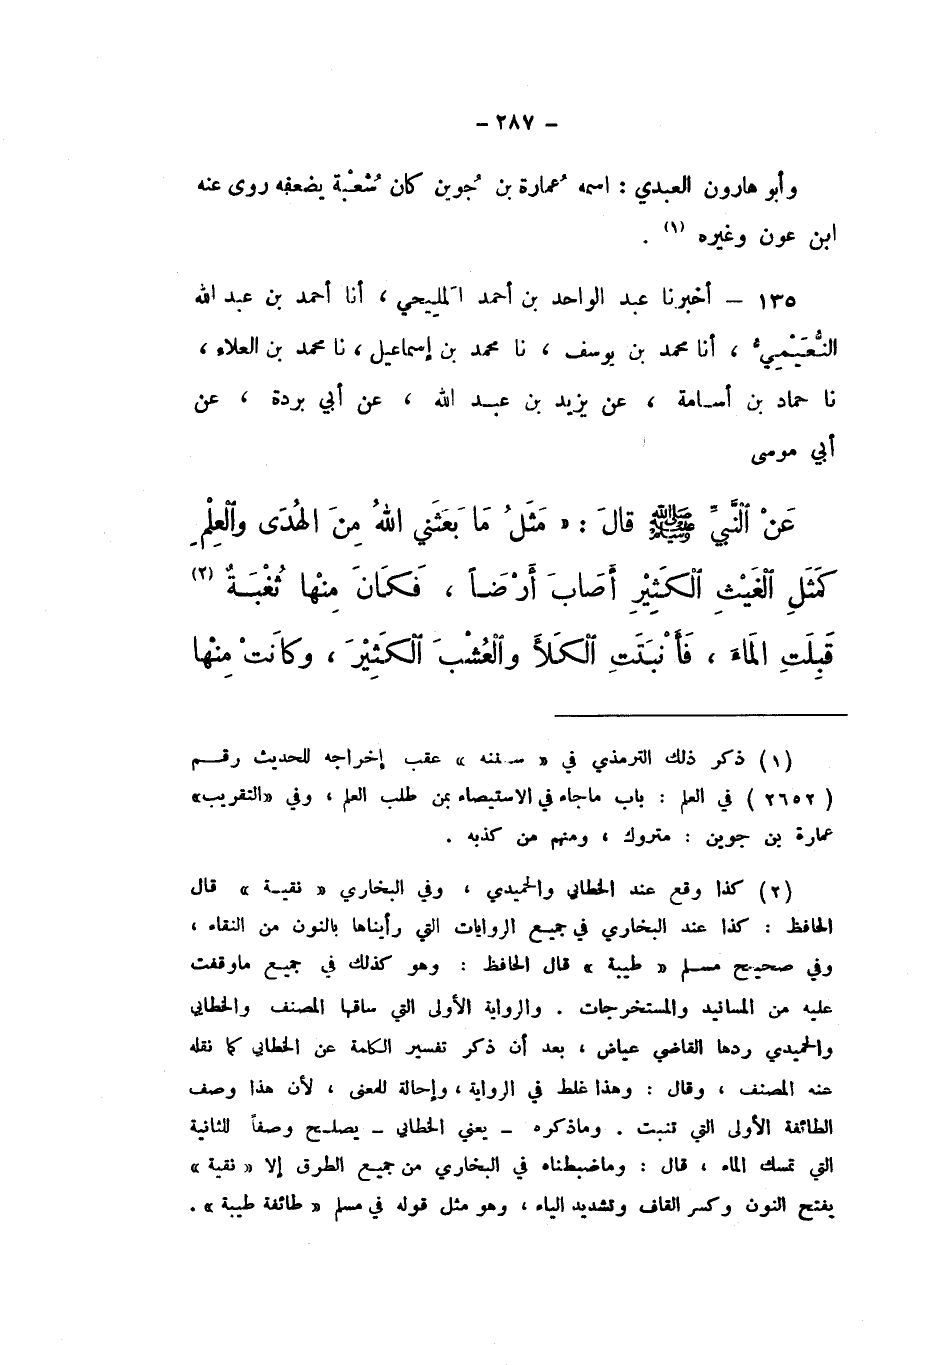 – ٢٨٧ –
وأبو هارون العبدي : اسمه عُمارة بن جُوين كان شُعْبة يضعفه روى عنه
ابن عون وغيره (١) .
١٣٥ – أخبرنا عبد الواحد بن أحمد المَليحي ، أنا أحمد بن عبد الله
النُّعَيْمِيُّ ، أنا محمد بن يوسف ، نا محمد بن إسماعيل ، نا محمد بن العلاء ،
نا حماد بن أسامة ، عن يزيد بن عبد الله ، عن أبي بردة ، عن
أبي موسى
عَنْ ٱلنَّبيِّ ﷺ قالَ : « مَثَلُ مَا بَعَثَني اللهُ مِنَ الهُدَى وٱلعِلْمِ
كَمَثَلِ ٱلغَيْثِ ٱلكَثِيْرِ أَصَابَ أَرْضاً ، فَكانَ مِنْها ثُغْبَةٌ (٢)
قَبِلَتِ المَاءَ ، فَأَنْبَتَتِ ٱلكَلأَ وٱلعُشْبَ ٱلكَثِيْرَ ، وكانَتْ مِنْها
(١) ذكر ذلك الترمذي في « سننه » عقب إخراجه للحديث رقم
( ٢٦٥٢ ) في العلم : باب ماجاء في الاستيصاء بمن طلب العلم ، وفي «التقريب»
عمارة بن جوين : متروك ، ومنهم من كذبه .
(٢) كذا وقع عند الخطابي والحميدي ، وفي البخاري « نقية » قال
الحافظ : كذا عند البخاري في جميع الروايات التي رأيناها بالنون من النقاء ،
وفي صحيح مسلم « طيبة » قال الحافظ : وهو كذلك في جميع ماوقفت
عليه من المسانيد والمستخرجات . والرواية الأولى التي ساقها المصنف والخطابي
والحميدي ردها القاضي عياض ، بعد أن ذكر تفسير الكلمة عن الخطابي كما نقله
عنه المصنف ، وقال : وهذا غلط في الرواية ، وإحالة للمعنى ، لأن هذا وصف
الطائفة الأولى التي تنبت . وماذكره – يعني الخطابي – يصلح وصفاً للثانية
التي تمسك الماء ، قال : وماضبطناه في البخاري من جميع الطرق إلا « نقية »
بفتح النون وكسر القاف وتشديد الياء ، وهو مثل قوله في مسلم « طائفة طيبة » .